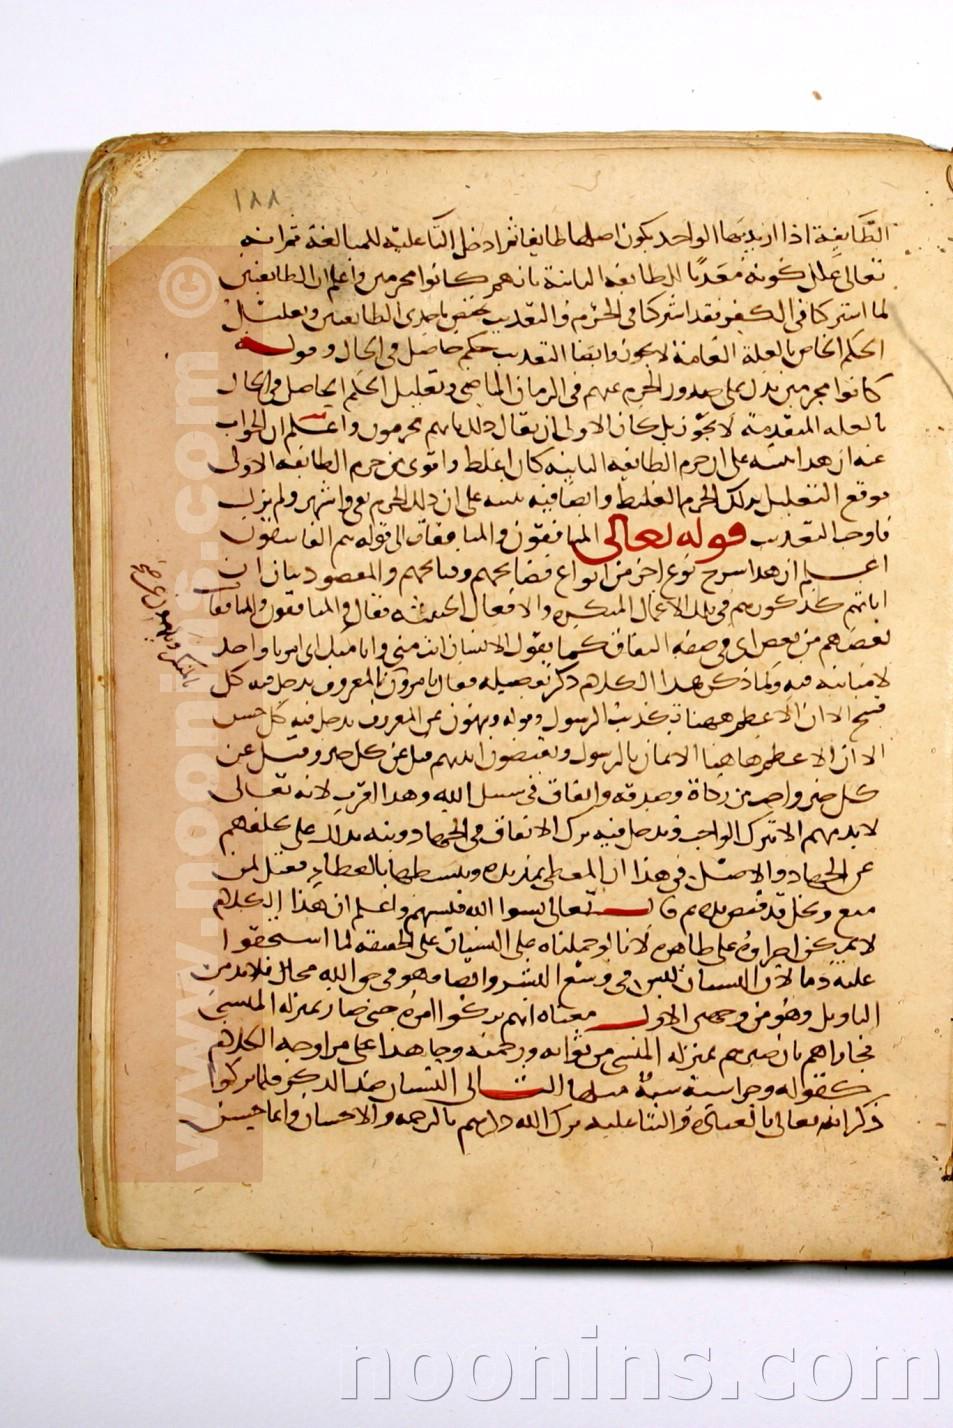 ١٨٨
الطَّائفة اذا اريد بها الواحد يكون اصلها طايفا ثم ادخل التا عليه للمبالغة ثم انه
تعالى علل كونه معذبا للطايفه الثانية بانهم كانوا مجرمين واعلم ان الطايفتين
لما اشتركا في الكفر فقد اشتركا في الجرم والتعذيب يختص باحدى الطايفتين وتعليل
الحكم الخاص بالعلة العامة لا يجوز وايضا التعذيب حكم حاصل في الحال وقوله
كانوا مجرمين يدل على صدور الجرم عنهم في الزمان الماضي وتعليل الحكم الحاصل في الحال
بالعله المتقدمة لا يجوز بل كان الاولى ان يقال ذلك بانهم مجرمون واعلم ان الجواب
عنه ان هذا تنبيه على ان جرم الطايفه الثانية كان اغلظ واقوى من جرم الطايفه الاولى
فوقع التعليل بذلك الجرم الغليظ وايضا فيه تنبيه على ان ذلك الجرم بقي واستمر ولم يزل
فاوجب التعذيب قوله تعالى المنافقون والمنافقات الى قوله هم الفاسقون
اعلم ان هذا شرح نوع اخر من انواع فضايحهم وقبايحهم والمقصود بيان ان
اناثهم كذكورهم في تلك الاعمال المنكره والافعال الخبيثه فقال المنافقون والمنافقات
بعضهم من بعض اى في صفه النفاق كما يقول الانسان انت مني وانا منك اى امرنا واحد
لا مباينه فيه ولما ذكر هذا الكلام ذكر تفصيله فقال يامرون بالمعروف يدخل فيه كل
قبيح الا ان الاعظم ههنا تكذيب الرسول وقوله وينهون عن المعروف يدخل فيه كل حسن
الا ان الاعظم هاهنا الايمان بالرسول ويقبضون ايديهم قيل عن كل خير وقيل عن
كل خير واجب من زكاة وصدقه وانفاق في سبيل الله وهذا اقرب لانه تعالى
لا يذمهم الا بترك الواجب ويدخل فيه ترك الانفاق في الجهاد ونبه بذلك على تخلفهم
عن الجهاد والاصل في هذا ان المعطي يمد يده ويبسطها بالعطاء فقيل لمن
منع وبخل قد قبض يده ثم قال تعالى نسوا الله فنسيهم واعلم ان هذا الكلام
لا يمكن اجراؤه على ظاهره لانا لو حملناه على النسيان على الحقيقه لما استحقوا
عليه ذما لان النسيان ليس في وسع البشر وايضا فهو في حق الله محال فلابد من
التاويل وهو من وجهين الاول معناه انهم تركوا امره حتى صار بمنزله المنسي
فجازاهم بان صيرهم بمنزله المنسي من ثوابه ورحمته وجا هذا على مزاوجه الكلام
كقوله وجزا سيئة سيئة مثلها الثاني النسيان ضد الذكر فلما تركوا
ذكر الله تعالى بالعبادة والثنا عليه ترك الله ذكرهم بالرحمه والاحسان وانما حسن
بالمنكر وينهون عن صح
www.noonins.com ©
noonins.com